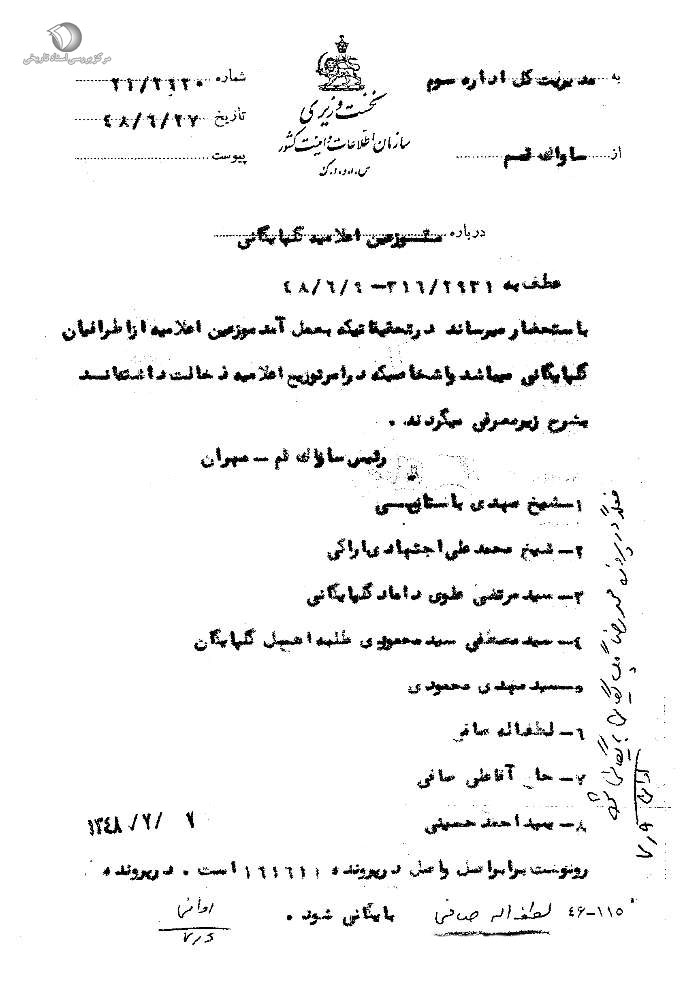 مرکز بررسی اسناد تاریخی
به مدیریت کل اداره سوم
از ساواک قم
نخست وزیری
سازمان اطلاعات و امنیت کشور
س.ا.و.ا.ک
شماره ۲۱/۲۶۲۰
تاریخ ۴۸/۶/۲۷
پیوست
درباره موزعین اعلامیه گلپایگانی
عطف به ۳۱۶/۲۹۳۱ – ۴۸/۶/۹
باستحضار میرساند در تحقیقاتیکه بعمل آمد موزعین اعلامیه از اطرافیان
گلپایگانی میباشد و اشخاصیکه در امر توزیع اعلامیه دخالت داشتهاند
بشرح زیر معرفی میگردند .
رئیس ساواک قم – مهران
۱– شیخ مهدی باستانی
۲– شیخ محمد علی اجتهادی اراکی
۳– سید مرتضی علوی داماد گلپایگانی
۴– سید مصطفی سید محمودی طلبه اهل گلپایگان
۵– سید مهدی محمودی
۶– لطف اله صافی
۷– حاج آقا علی صافی
۸– سید احمد حسینی
۱۳۴۸/۷/۷
رونوشت برابر اصل و اصل در پرونده ۱۶۱۶۱۱ است . در پرونده
۴۶-۱۱۵ لطف اله صافی بایگانی شود .